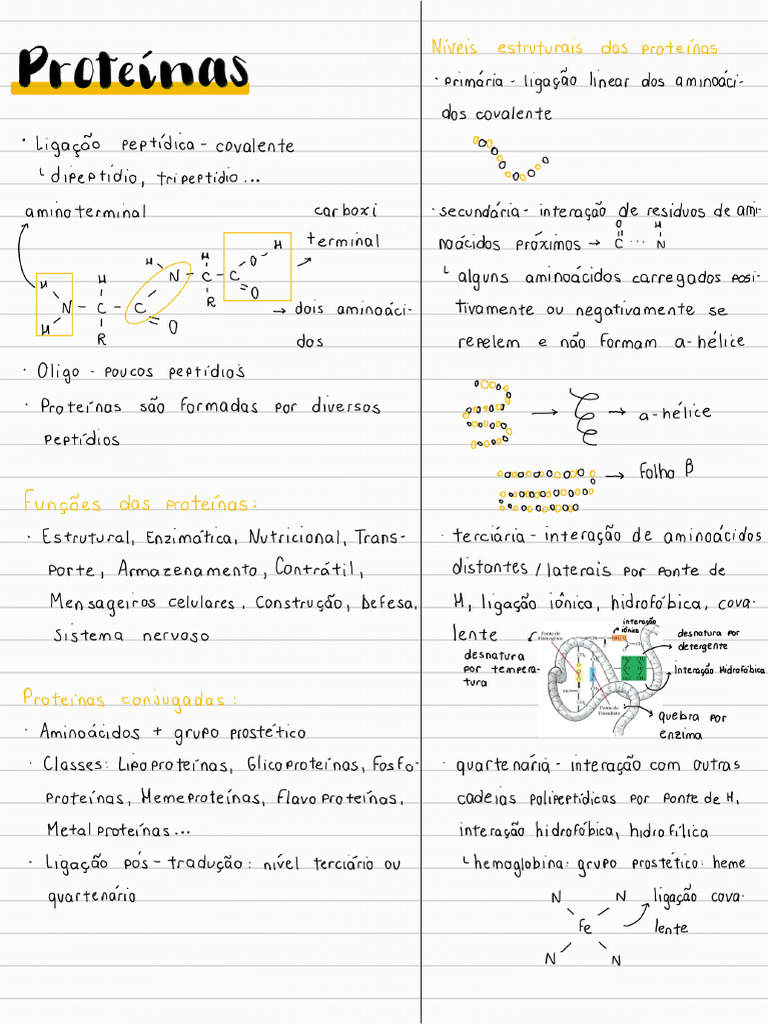 Proteínas
· Ligação peptídica - covalente
└ dipeptídio, tripeptídio...
aminoterminal
carboxi
terminal
H
H
N - C - C
H
H
R
O
H
N - C - C
H
R
O
H
O
→ dois aminoáci-
dos
· Oligo - poucos peptídios
· Proteínas são formadas por diversos
peptídios
Funções das proteínas:
· Estrutural, Enzimática, Nutricional, Trans-
porte, Armazenamento, Contrátil,
Mensageiros celulares, Construção, Defesa,
Sistema nervoso
Proteínas conjugadas:
· Aminoácidos + grupo prostético
· Classes: Lipoproteínas, Glicoproteínas, Fosfo-
proteínas, Hemeproteínas, Flavoproteínas,
Metalproteínas...
· Ligação pós-tradução: nível terciário ou
quartenário
Níveis estruturais das proteínas
· primária - ligação linear dos aminoáci-
dos covalente
· secundária - interação de resíduos de ami-
noácidos próximos → C ··· N
O
H
└ alguns aminoácidos carregados posi-
tivamente ou negativamente se
repelem e não formam a-hélice
→ → a-hélice
→ Folha β
· terciária - interação de aminoácidos
distantes / laterais por ponte de
H, ligação iônica, hidrofóbica, cova-
lente
interação
iônica
Ponte de
Hidrogênio
desnatura
por tempera-
tura
desnatura por
detergente
interação Hidrofóbica
Ponte de
Dissulfeto
quebra por
enzima
· quartenária - interação com outras
cadeias polipeptídicas por ponte de H,
interação hidrofóbica, hidrofílica
└ hemoglobina: grupo prostético: heme
N
N
Fe
N
N
ligação cova-
lente